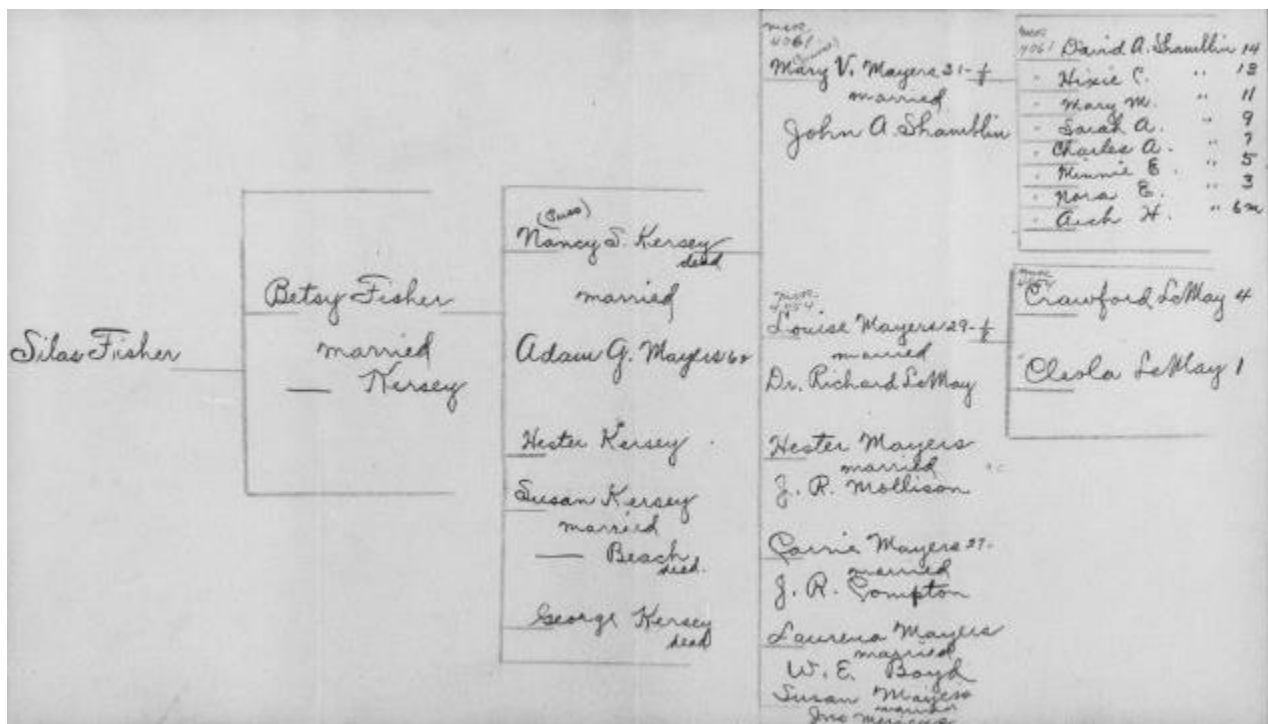 Silas Fisher
Betsy Fisher
married
— Kersey
(Puss)
Nancy S. Kersey
dead
married
Adam G. Mayers 62
Hester Kersey
Susan Kersey
married
— Beach
dead.
George Kersey
dead
mcr
4061
Mary V. Mayers 31-1/8
married
John A. Shamblin
mcr
Louise Mayers 29-1/8
married
Dr. Richard LeMay
Hester Mayers
married
J. R. Mollison
Carrie Mayers 27-
married
J. R. Compton
Laurena Mayers
married
W. E. Boyd
Susan Mayers
married
Jno
mcr
4061 David A. Shamblin 14
" Hixie C. " 13
" Mary M. " 11
" Sarah A. " 9
" Charles A. " 7
" Minnie E. " 5
" Nora E. " 3
" Arch H. " 6m
mcr
Crawford LeMay 4
" Cleola LeMay 1